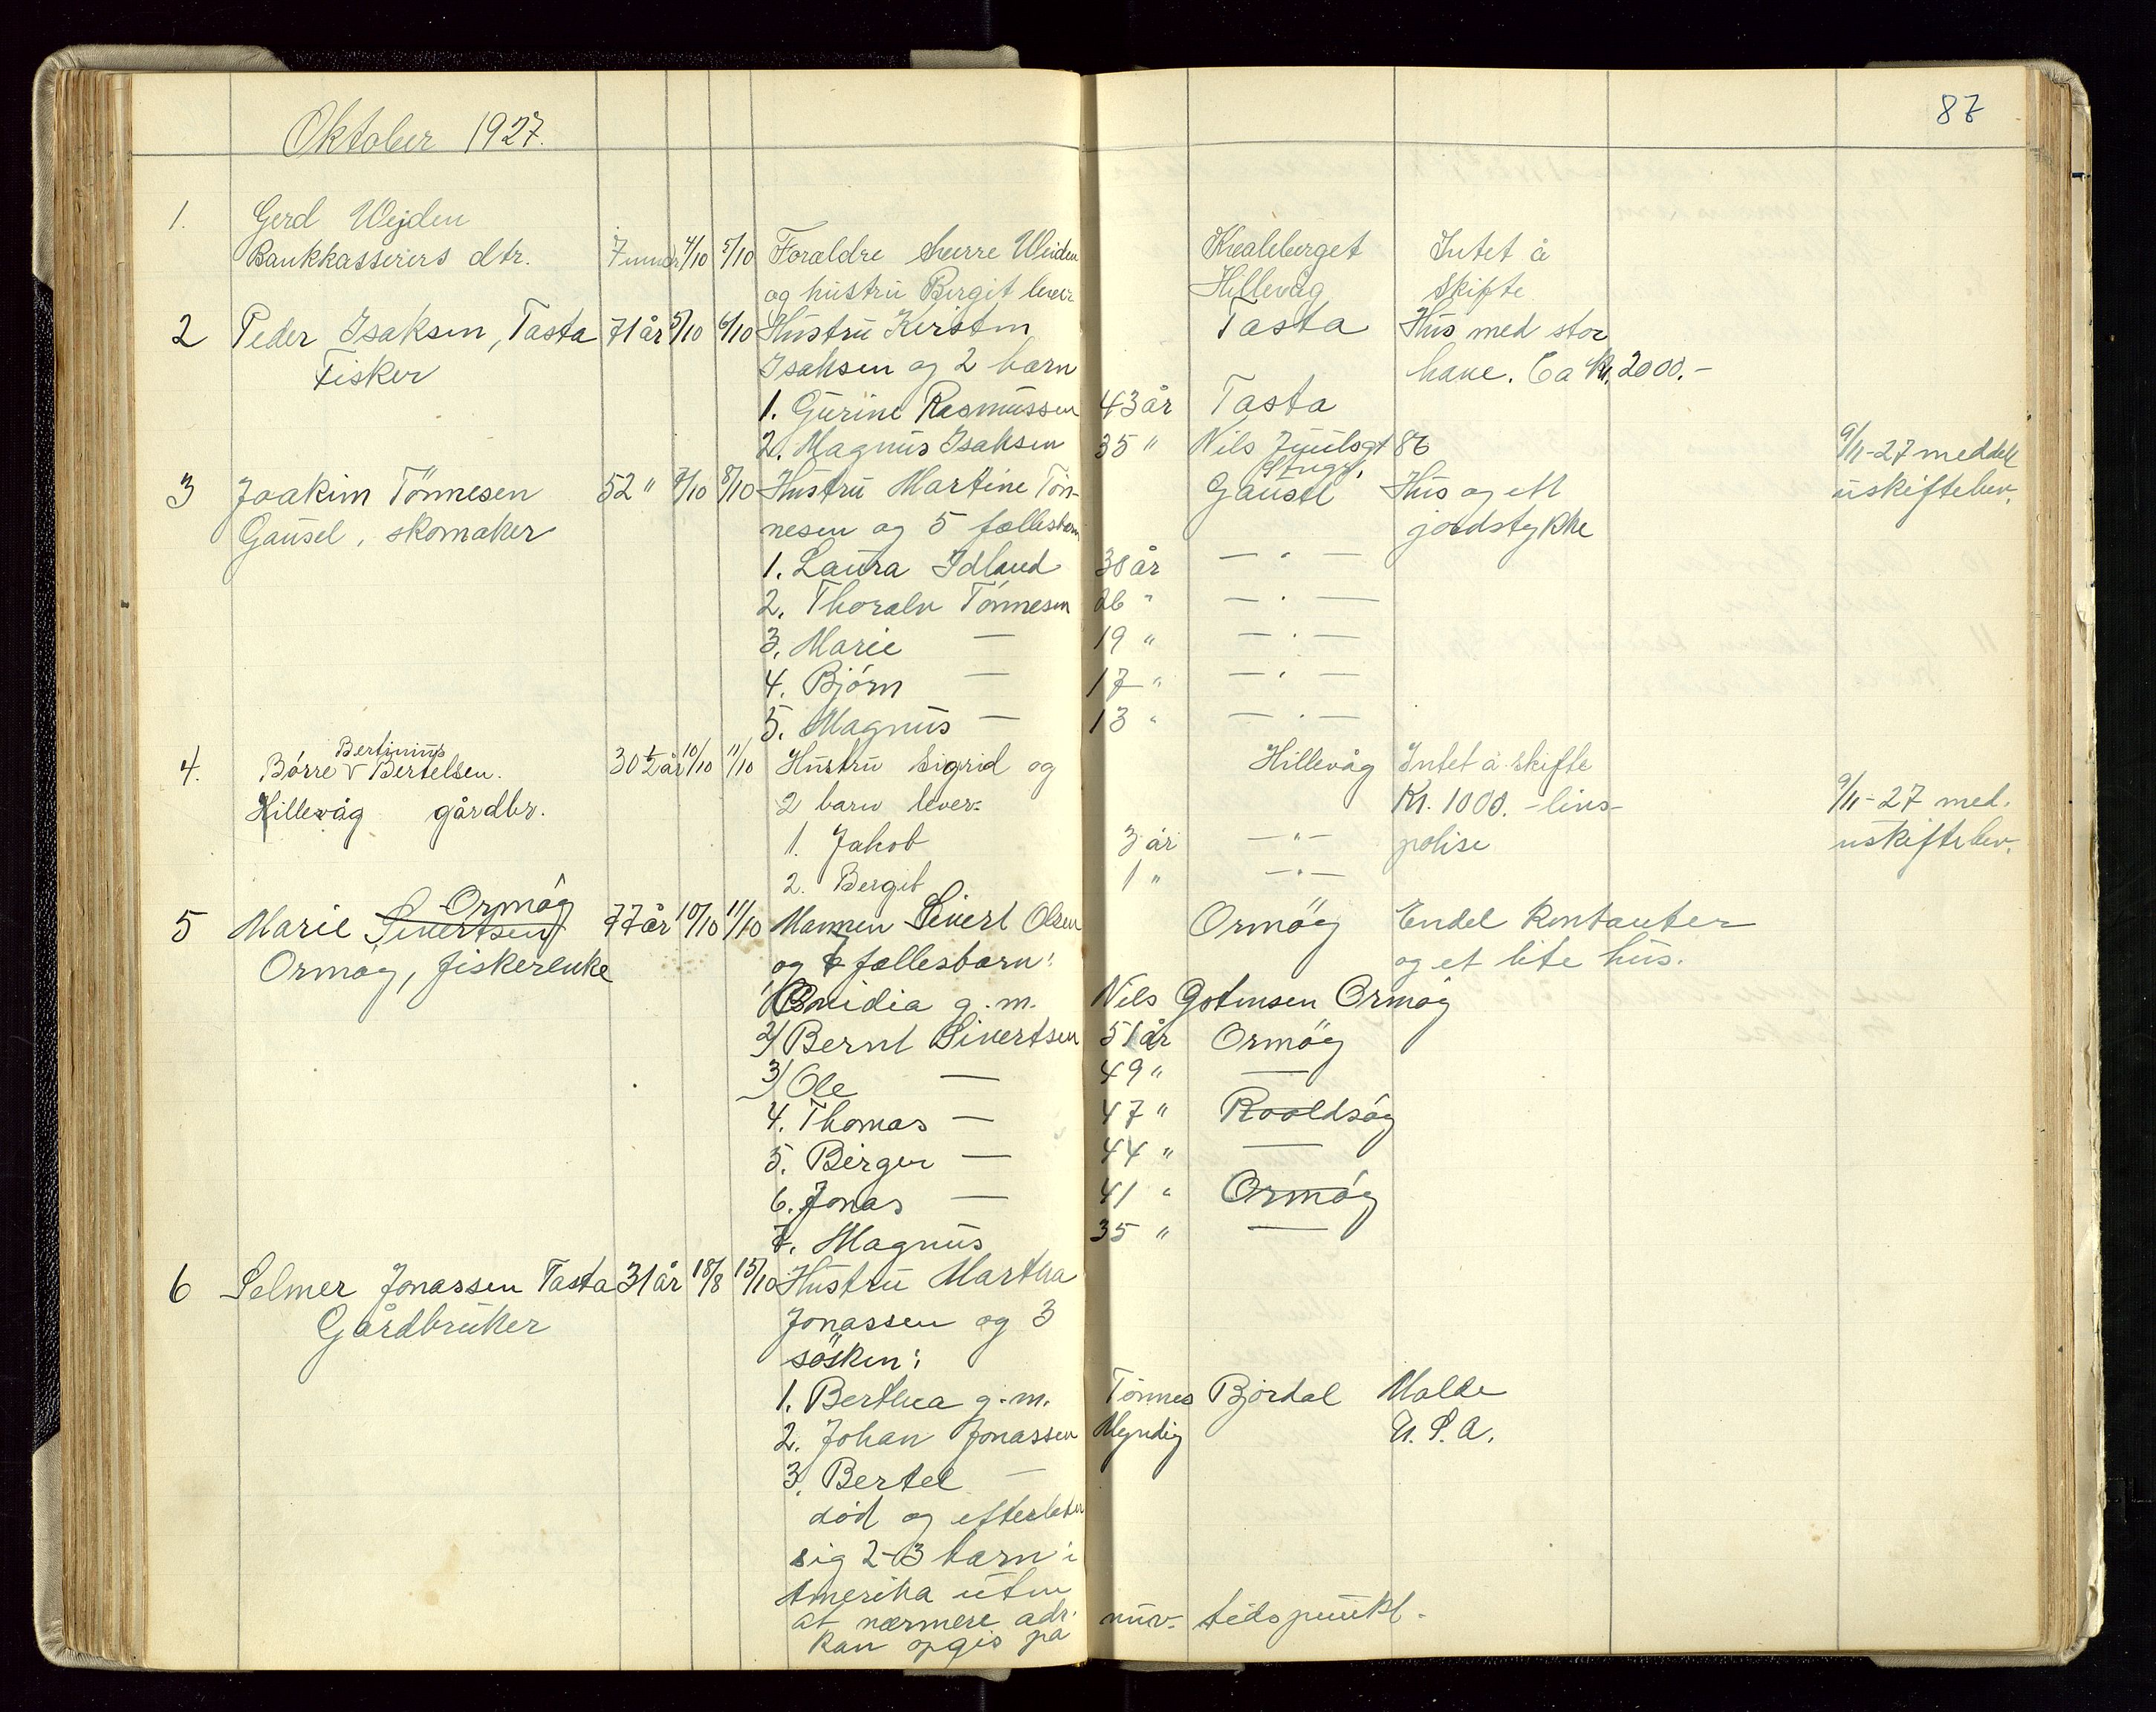 87
Oktober 1927.
1. Gerd Wejden 4/10 5/10 Foraldre herre Weiden Kvaleberget Intet å
Bankkasserers dtr. og hustru Birgit lever Hillevåg skifte
2 Peder Isaksen, Tasta 71 år 5/10 6/10 Hustru Kirsten Tasta Hus med stor
Fisker Isaksen og 2 barn have. Ca Kr. 2000.-
1. Gurine Rasmussen 43 år Tasta
2. Magnus Isaksen 35 " Nils Juulsgt 86 9/11-27 meddelt
3 Joakim Tönnesen 52 " 8/10 Hustru Martine Tön- Gausel Hus og ett uskiftebev.
Gausel, skomaker nesen og 5 fællesbarn jordstykke
1. Laura Idland 30 år — " —
2. Thoralv Tönnesen 26 " — " —
3. Marie — 19 " — " —
4. Björn — 17 " — " —
5. Magnus — 13 " — " —
Bertinius
4. Börre V Bertelsen. 30 1/2 år 10/10 11/10 Hustru Sigrid og Hillevåg Intet å skifte
Hillevåg gårdbr. 2 barn lever: Kr. 1000.- livs- 9/11-27 med.
1. Jakob 3 år — " — polise uskiftebev.
2. Bergit 1 " — " —
Ormöy
5 Marie Sivertsen 77 år 10/10 11/10 Mannen Sivert Olsen Ormöy Endel Kontanter
Ormöy, fiskerenke og 7 fællesbarn: og et lite hus.
g. m. Nils Gotensen Ormöy
2) Bernt Sivertsen 51 år Ormöy
3) Ole — 49 " —
4. Thomas — 47 " Roaldsöy
5. Birger — 44 " —
6. Jonas — 41 " Ormöy
7. Magnus 35 " —
6 Selmer Jonassen Tasta 31 år 18/8 15/10 Hustru Martha
Gårdbruker Jonassen og 3
sösken:
1. Berthea g. m. Tönnes Björdal Malde
2. Johan Jonassen Myndig U. S. A.
3. Bertel —
död og efterlater
sig 2-3 barn i
Amerika uten
at nærmere adr. nuv. tidspunkt.
kan opgis på